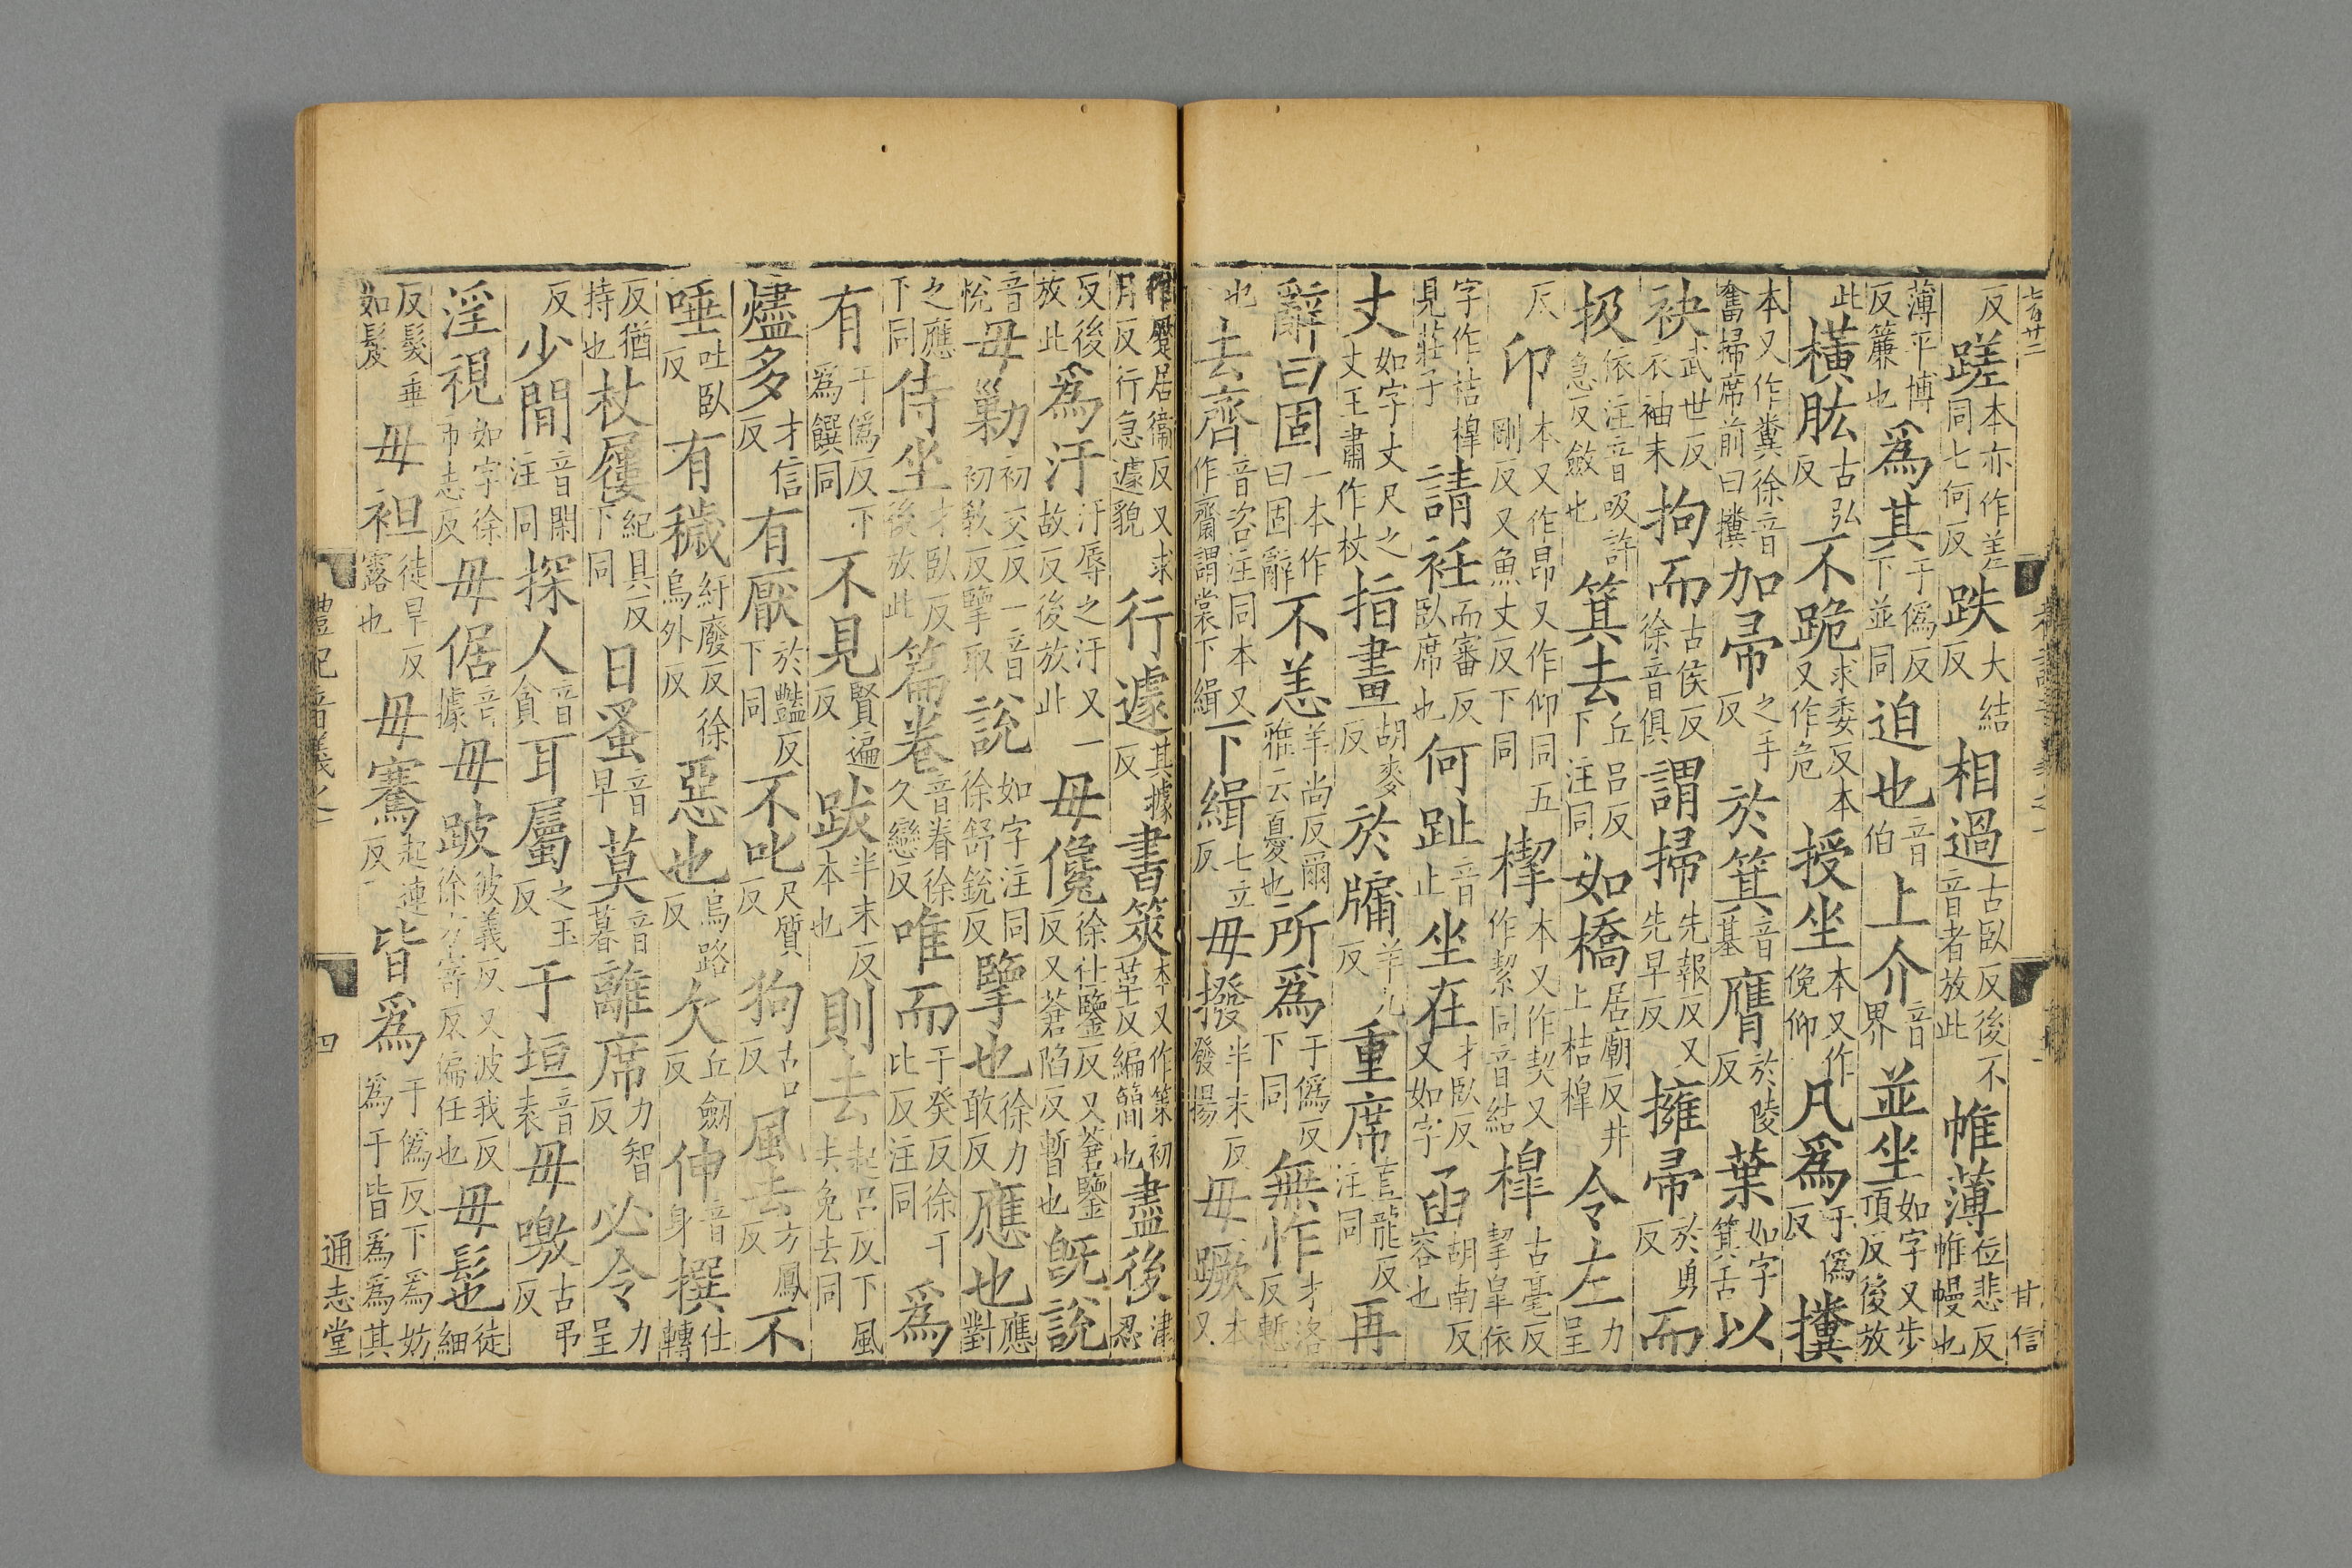 反蹉本亦作差同七何反跌大結反相過古臥反後不音者放此帷薄位悲反帷幔也
薄平博反簾也爲其于僞反下並同迫也音伯上介音界並坐如字又步頂反後放
此橫肱古弘反不跪求委反本又作危授坐本又作俛仰凡爲于僞反攩
本又作糞徐音奮掃席前曰攩加帚之手反於箕音基膺於陵反葉如字箕舌以
袂武世反衣袖末拘而古侯反徐音俱謂掃先報反又先早反擁帚於勇反而
扱依注音吸許急反斂也箕去丘呂反下注同如橋居廟反井上桔槹令左力呈
反卬本又作昂又作仰同五剛反又魚丈反下同楔本又作契又作絜同音結槹古毫反挈皐依
字作桔槹見莊子請衽而審反臥席也何趾音止坐在才臥反又如字函胡南反容也
丈如字丈尺之丈王肅作杖指畫胡麥反於牖羊九反重席直龍反注同再
辭曰固一本作曰固辭不恙羊尚反爾雅云憂也所爲于僞反下同無怍才洛反慙
也去齊音咨注同本又作齋謂裳下緝下緝七立反毋撥半末反發揚毋蹶本又
作蹷居衞反又求月反行急遽貌行遽其據反書筴本又作策初革反編簡也盡後津忍
反後放此爲汙汙辱之汙又一故反後放此毋儳徐仕鑒反又蒼鑒反又蒼陷反暫也旣說
音悅毋勦初交反一音初敎反擥取說如字注同徐舒銳反擥也徐力敢反應也應對
之應下同侍坐才臥反後放此篇卷音眷徐久戀反唯而于癸反徐于比反注同爲
有于僞反下爲饌同不見賢遍反跋半末反本也則去起呂反下風去免去同
燼多才信反有厭於豔反下同不叱尺質反狗古口反風去方鳳反不
唾吐臥反有穢紆廢反徐烏外反惡也烏路反欠丘劒反伸音身撰仕轉
反猶持也杖屨紀具反下同日蚤音早莫音暮離席力智反必令力呈
反少閒音閑注同探人音貪耳屬之玉反于垣音袁毋噭古弔反
淫視如字徐市志反毋倨音據毋跛彼義反又波我反徐方寄反偏任也毋髢徒細
反髮垂如髲毋袒徒旱反露也毋騫起連反皆爲于僞反下爲妨爲于皆爲爲其
禮記音義之一
四
通志堂